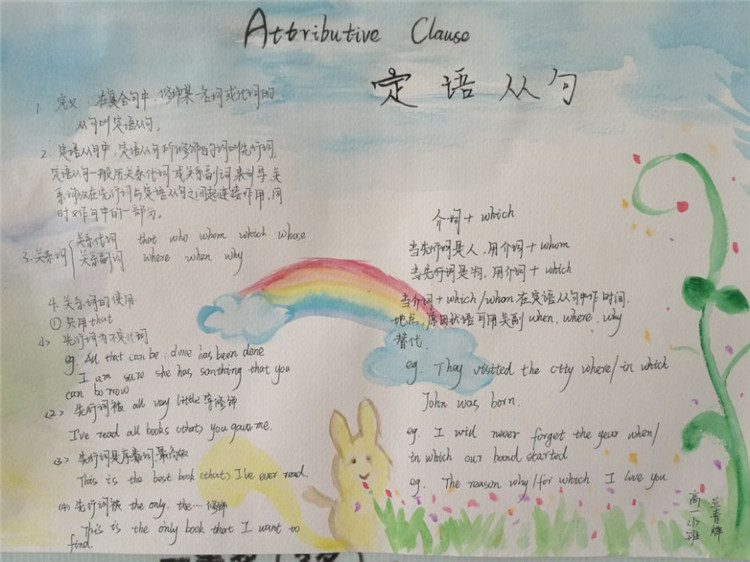 Attributive Clause
定语从句
1. 定义 在复合句中,修饰某一名词或代词的
从句叫定语从句。
2. 定语从句中,定语从句所修饰的词叫先行词,
定语从句一般用关系代词或关系副词来引导,关
系词放在先行词与定语从句之间起连接作用,同
时又作句中的一部分。
3. 关系词 关系代词 that who whom which whose
关系副词 where when why
4. 关系词的使用
① 只用that
<1> 先行词为不定代词
eg. All that can be done has been done
I am sure she has somthing that you
can borrow
<2> 先行词被 all very little 等修饰
I've read all books (that) you gave me.
<3> 先行词是序数词、最高级
This is the best book (that) I've ever read.
<4> 先行词被 the only, the 修饰
This is the only book that I want to
find.
介词 + which
当先行词是人,用介词 + whom
当先行词是物,用介词 + which
当介词 + which/whom 在定语从句中作时间,
地点,原因状语可用关副 when, where, why
替代.
eg. They visited the city where/in which
John was born.
eg. I will never forget the year when/
in which our band started
eg. The reason why/for which I love you
高一
班